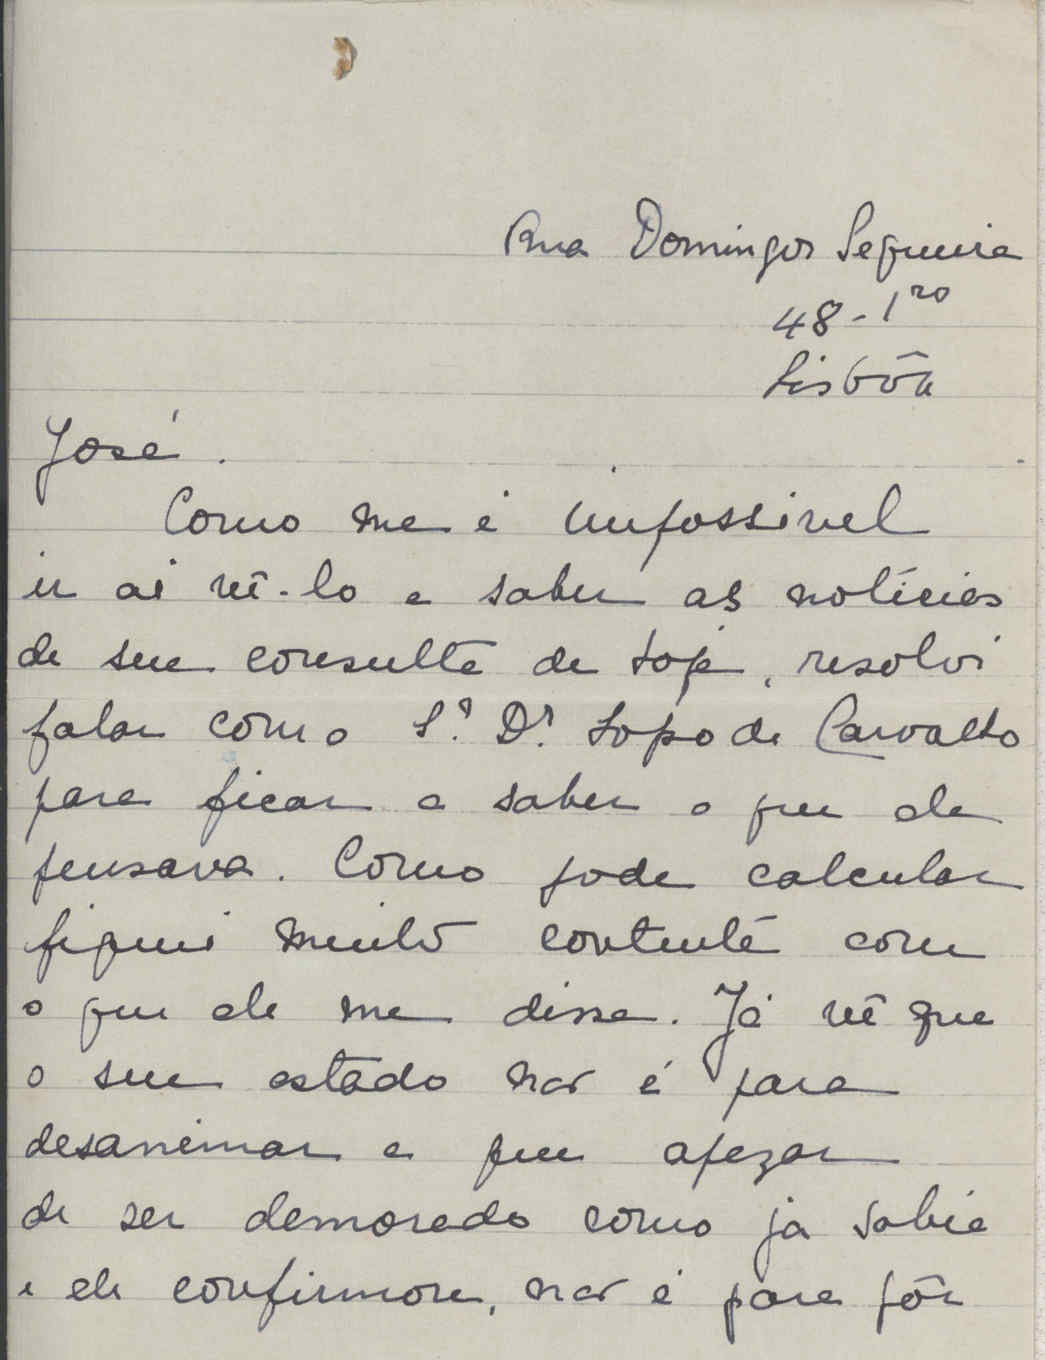 Rua Domingos Sequeira
48-1ro
Lisbôa
José.
Como me é impossivel
ir aí vê-lo e saber as notícias
da sua consulta de hoje, resolvi
falar com o Sr. Dr. Lopo de Carvalho
para ficar a saber o que ele
pensava. Como pode calcular
fiquei muito contente com
o que ele me disse. Já vê que
o seu estado não é para
desanimar e que apezar
de ser demorado como já sabia
e ele confirmou, não é para pôr